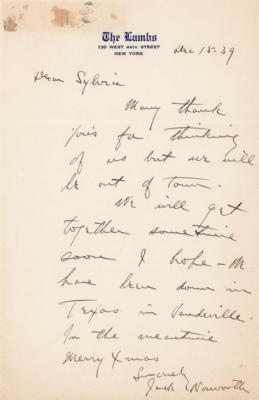 The Lambs
130 WEST 44TH STREET
NEW YORK
Dec 15-39
Dear Sylvia
Many thank
you's for thinking
of us but we will
be out of town.
We will get
together sometime
soon I hope - We
have been down in
Texas in Vaudeville.
In the meantime
Merry Xmas
Sincerely
Jack Norworth